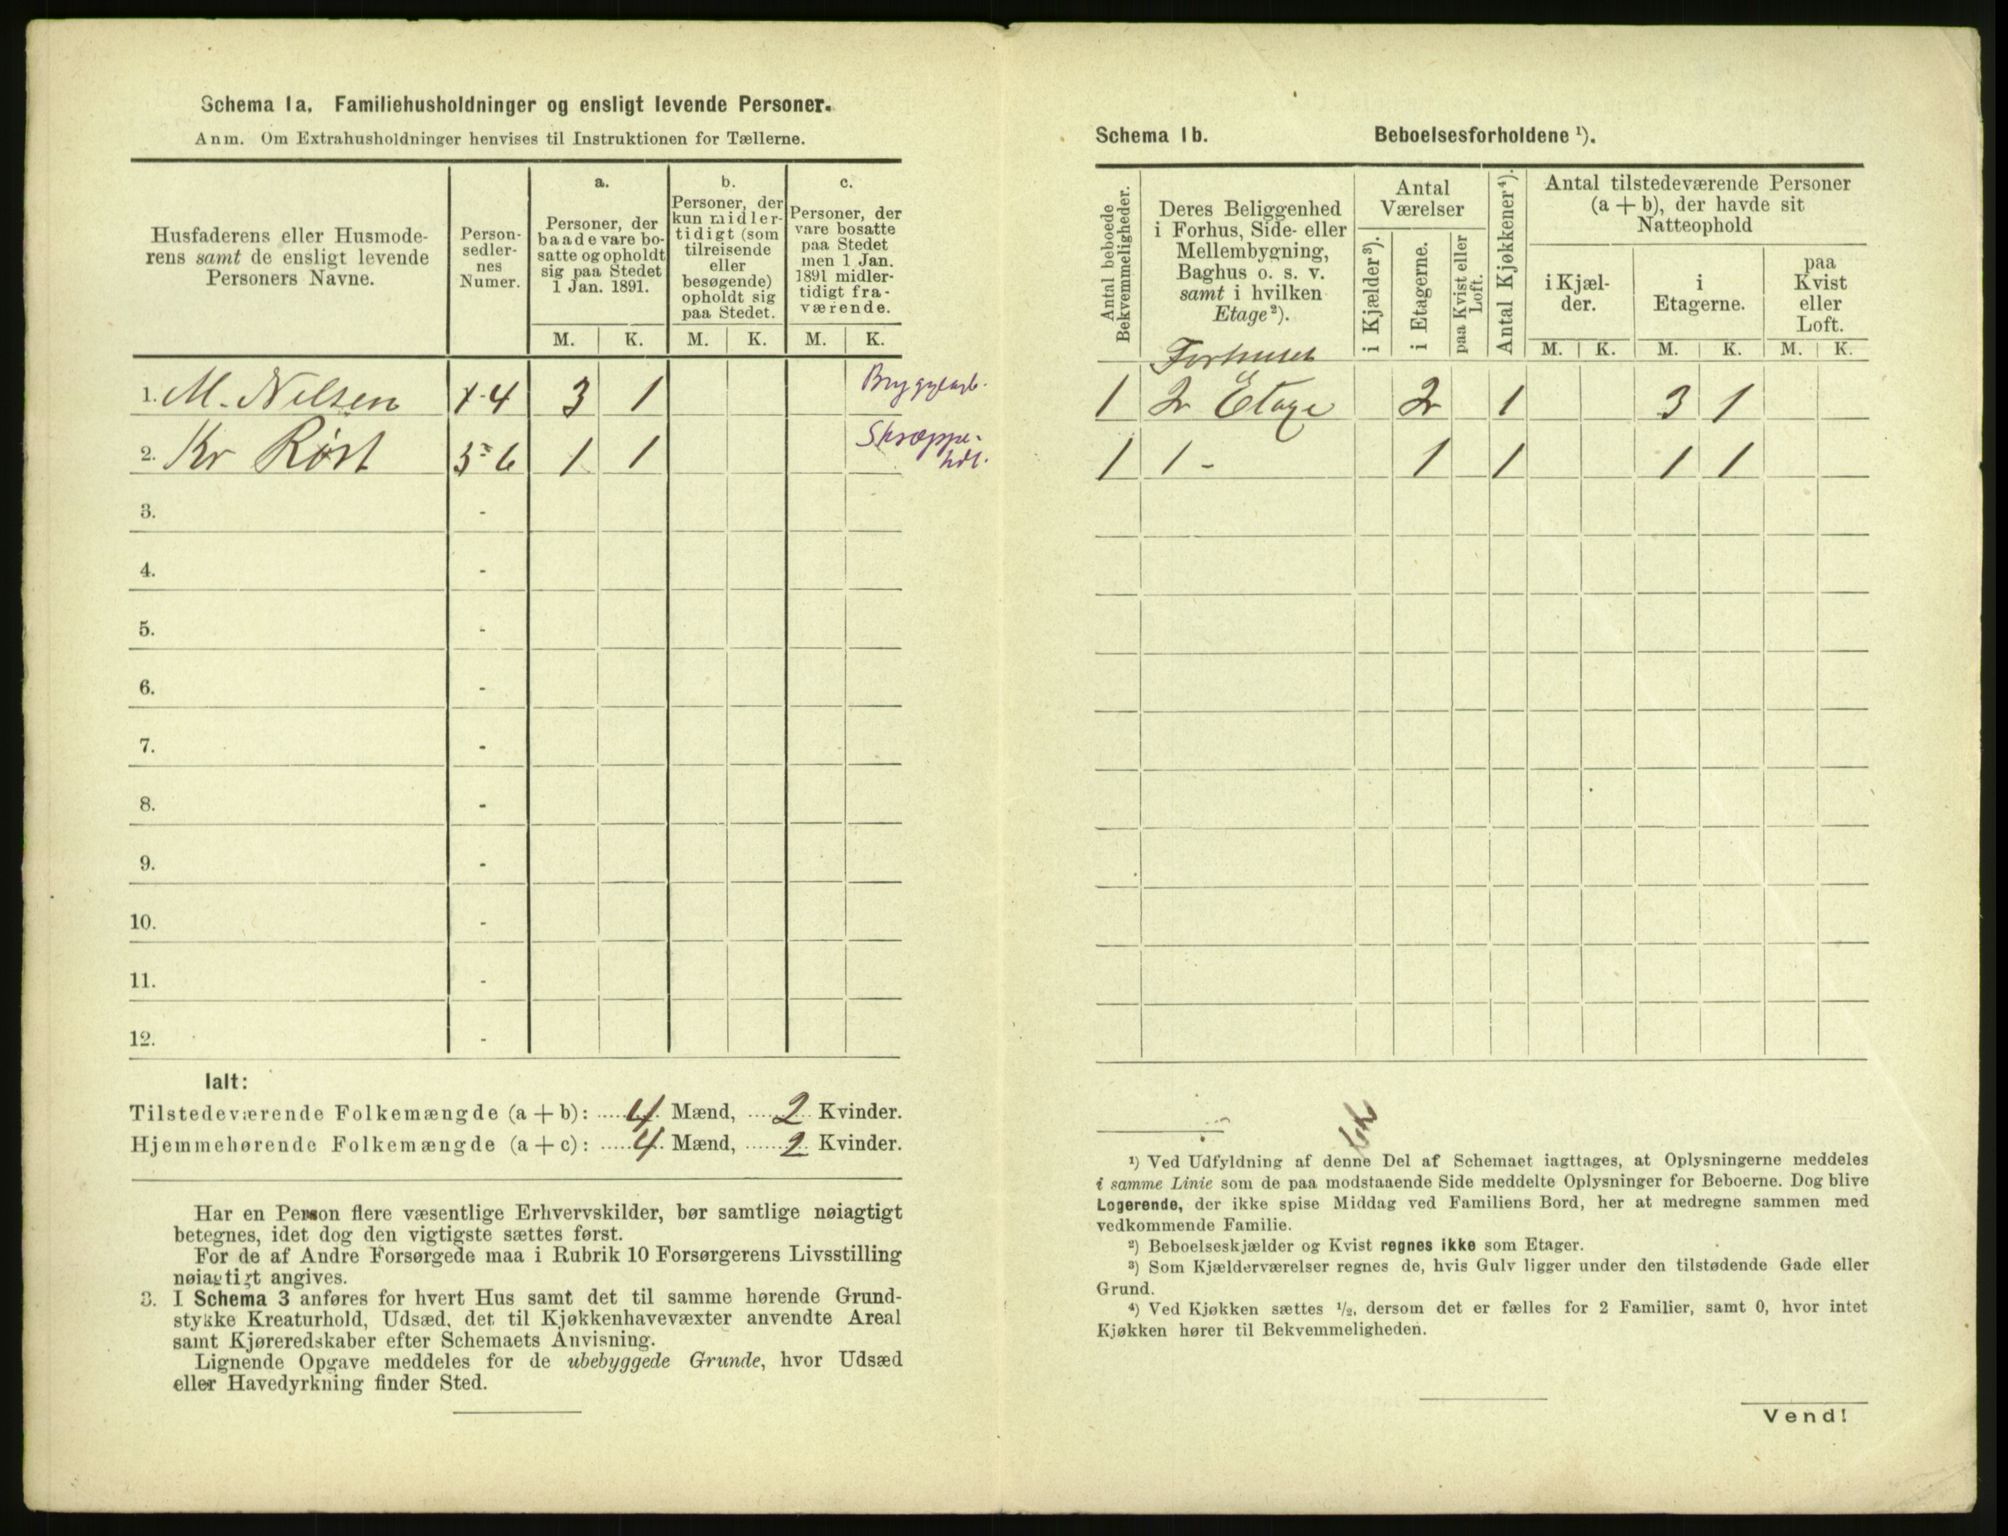 Schema 1a. Familiehusholdninger og ensligt levende Personer.
Anm. Om Extrahusholdninger henvises til Instruktionen for Tællerne.
Husfaderens eller Husmode-
rens samt de ensligt levende
Personers Navne.
Person-
sedler-
nes
Numer.
a.
Personer, der
baade vare bo-
satte og opholdt
sig paa Stedet
1 Jan. 1891.
b.
Personer, der
kun midler-
tidigt (som
tilreisende
eller
besøgende)
opholdt sig
paa Stedet.
c.
Personer, der
vare bosatte
paa Stedet
men 1 Jan.
1891 midler-
tidigt fra-
værende.
M. K. M. K. M. K.
1. M. Nilsen 1-4 3 1 Bryggearb.
2. Kr Røst 5-6 1 1 Skræppe-
hdl.
3. -
4. -
5. -
6. -
7. -
8. -
9. -
10. -
11. -
12. -
Ialt:
Tilstedeværende Folkemængde (a + b): 4 Mænd, 2 Kvinder.
Hjemmehørende Folkemængde (a + c): 4 Mænd, 2 Kvinder.
Har en Person flere væsentlige Erhvervskilder, bør samtlige nøiagtigt
betegnes, idet dog den vigtigste sættes først.
For de af Andre Forsørgede maa i Rubrik 10 Forsørgerens Livsstilling
nøiagtigt angives.
3. I Schema 3 anføres for hvert Hus samt det til samme hørende Grund-
stykke Kreaturhold, Udsæd, det til Kjøkkenhavevæxter anvendte Areal
samt Kjøreredskaber efter Schemaets Anvisning.
Lignende Opgave meddeles for de ubebyggede Grunde, hvor Udsæd
eller Havedyrkning finder Sted.
Schema 1b. Beboelsesforholdene ¹).
Antal beboede
Bekvemmeligheder.
Deres Beliggenhed
i Forhus, Side- eller
Mellembygning,
Baghus o. s. v.
samt i hvilken
Etage ²).
Antal
Værelser
i Kjælder ³).
i Etagerne.
paa Kvist eller
Loft.
Antal Kjøkkener ⁴).
Antal tilstedeværende Personer
(a + b), der havde sit
Natteophold
i Kjæl-
der.
i
Etagerne.
paa
Kvist
eller
Loft.
M. K. M. K. M. K.
Forhuset
1 2 Etage 2 1 3 1
1 1 - 1 1 1 1
¹) Ved Udfyldning af denne Del af Schemaet iagttages, at Oplysningerne meddeles
i samme Linie som de paa modstaaende Side meddelte Oplysninger for Beboerne. Dog blive
Logerende, der ikke spise Middag ved Familiens Bord, her at medregne sammen med
vedkommende Familie.
²) Beboelseskjælder og Kvist regnes ikke som Etager.
³) Som Kjælderværelser regnes de, hvis Gulv ligger under den tilstødende Gade eller
Grund.
⁴) Ved Kjøkken sættes ½, dersom det er fælles for 2 Familier, samt 0, hvor intet
Kjøkken hører til Bekvemmeligheden.
Vend!